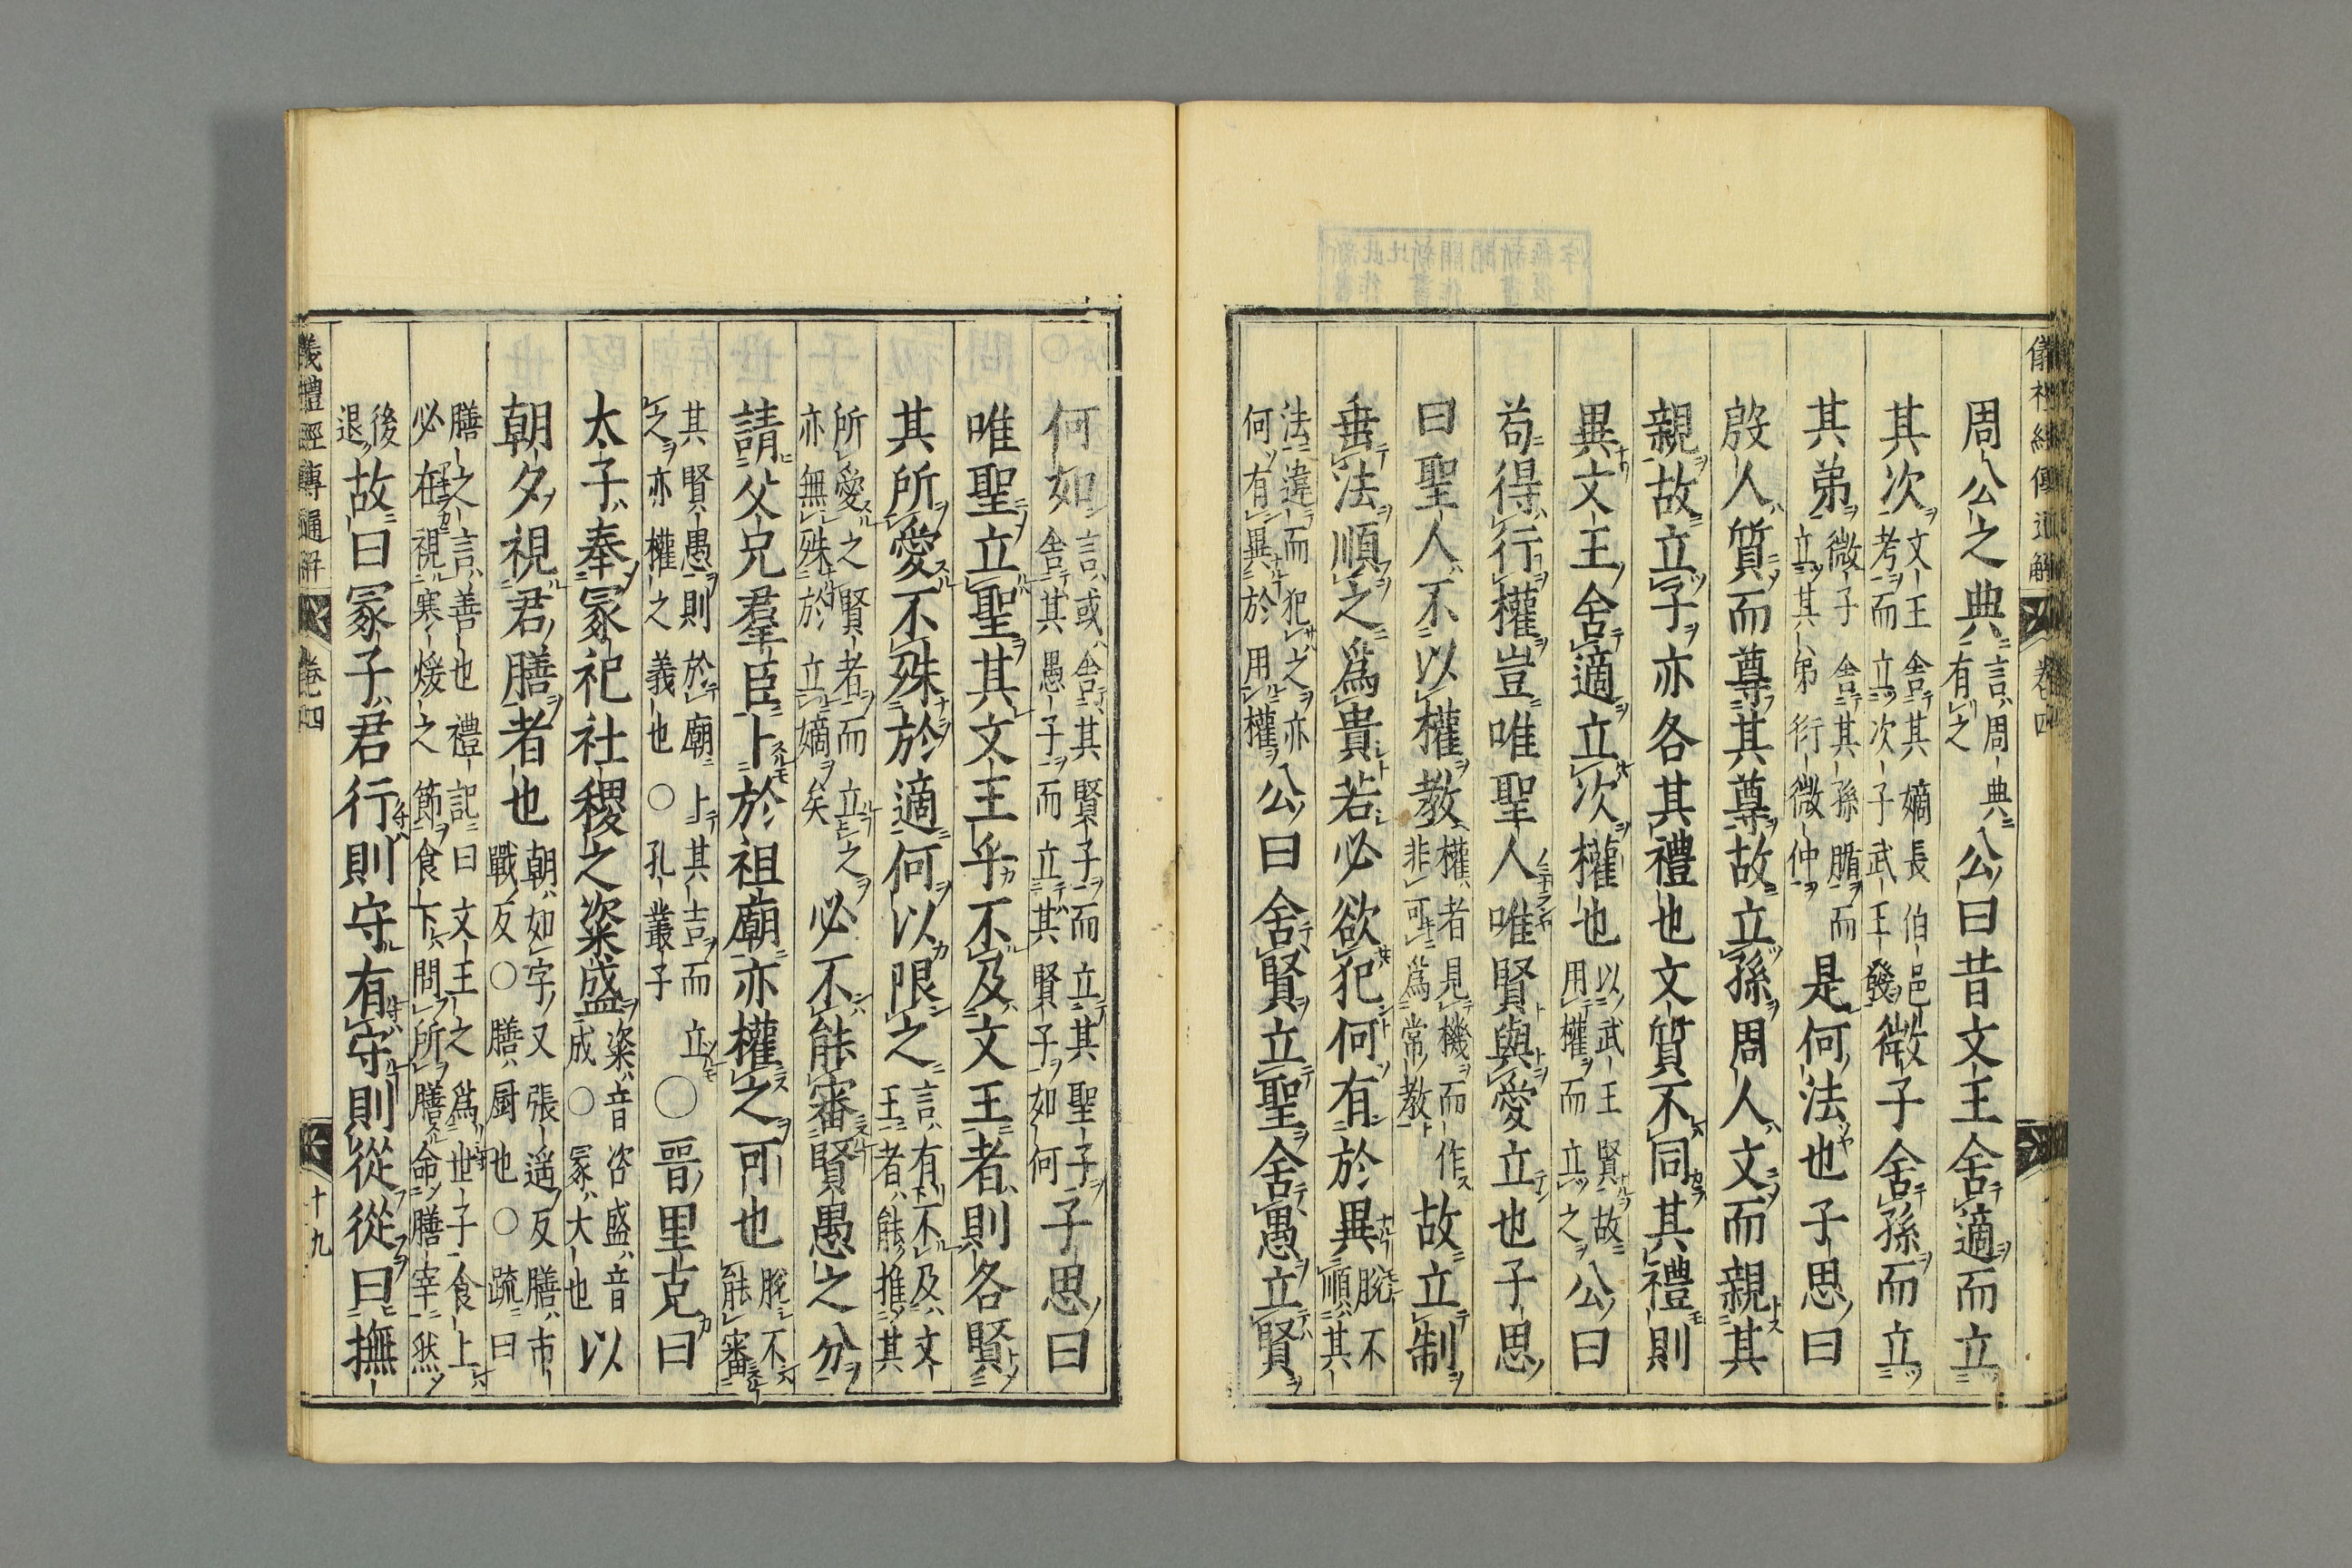 儀禮經傳通解 卷四
周公之典言周典有之公曰昔文王舍適而立
其次文王舍其嫡長伯邑考而立次子武王發微子舍孫而立
其弟微子舍其孫腯而立其弟衍微仲是何法也子思曰
殷人質而尊其尊故立孫周人文而親其
親故立子亦各其禮也文質不同其禮則
異文王舍適立次權也以武王賢故用權而立之公曰
苟得行權豈唯聖人唯賢與愛立也子思
曰聖人不以權教權者見機而作非可爲常教故立制
垂法順之爲貴若必欲犯何有於異脫不順其
法違而犯之亦何有異於用權公曰舍賢立聖舍愚立賢
何如言或舍其賢子而立其聖子舍其愚子而立其賢子如何子思曰
唯聖立聖其文王乎不及文王者則各賢
其所愛不殊於適何以限之言有不及文王者能推其
所愛之賢者而立之亦無殊於立嫡矣必不能審賢愚之分
請父兄羣臣卜於祖廟亦權之可也脫不能審
其賢愚則於廟卜其吉而立之亦權之義也○孔叢子○晉里克曰
太子奉冢祀社稷之粢盛粢音咨盛音成○冢大也以
朝夕視君膳者也朝如字又張遥反膳市戰反○膳厨也○疏曰
膳之言善也禮記曰文王之爲世子食上必在視寒煖之節食下問所膳命膳宰然
後退故曰冢子君行則守有守則從從曰撫
儀禮經傳通解 卷四 十九